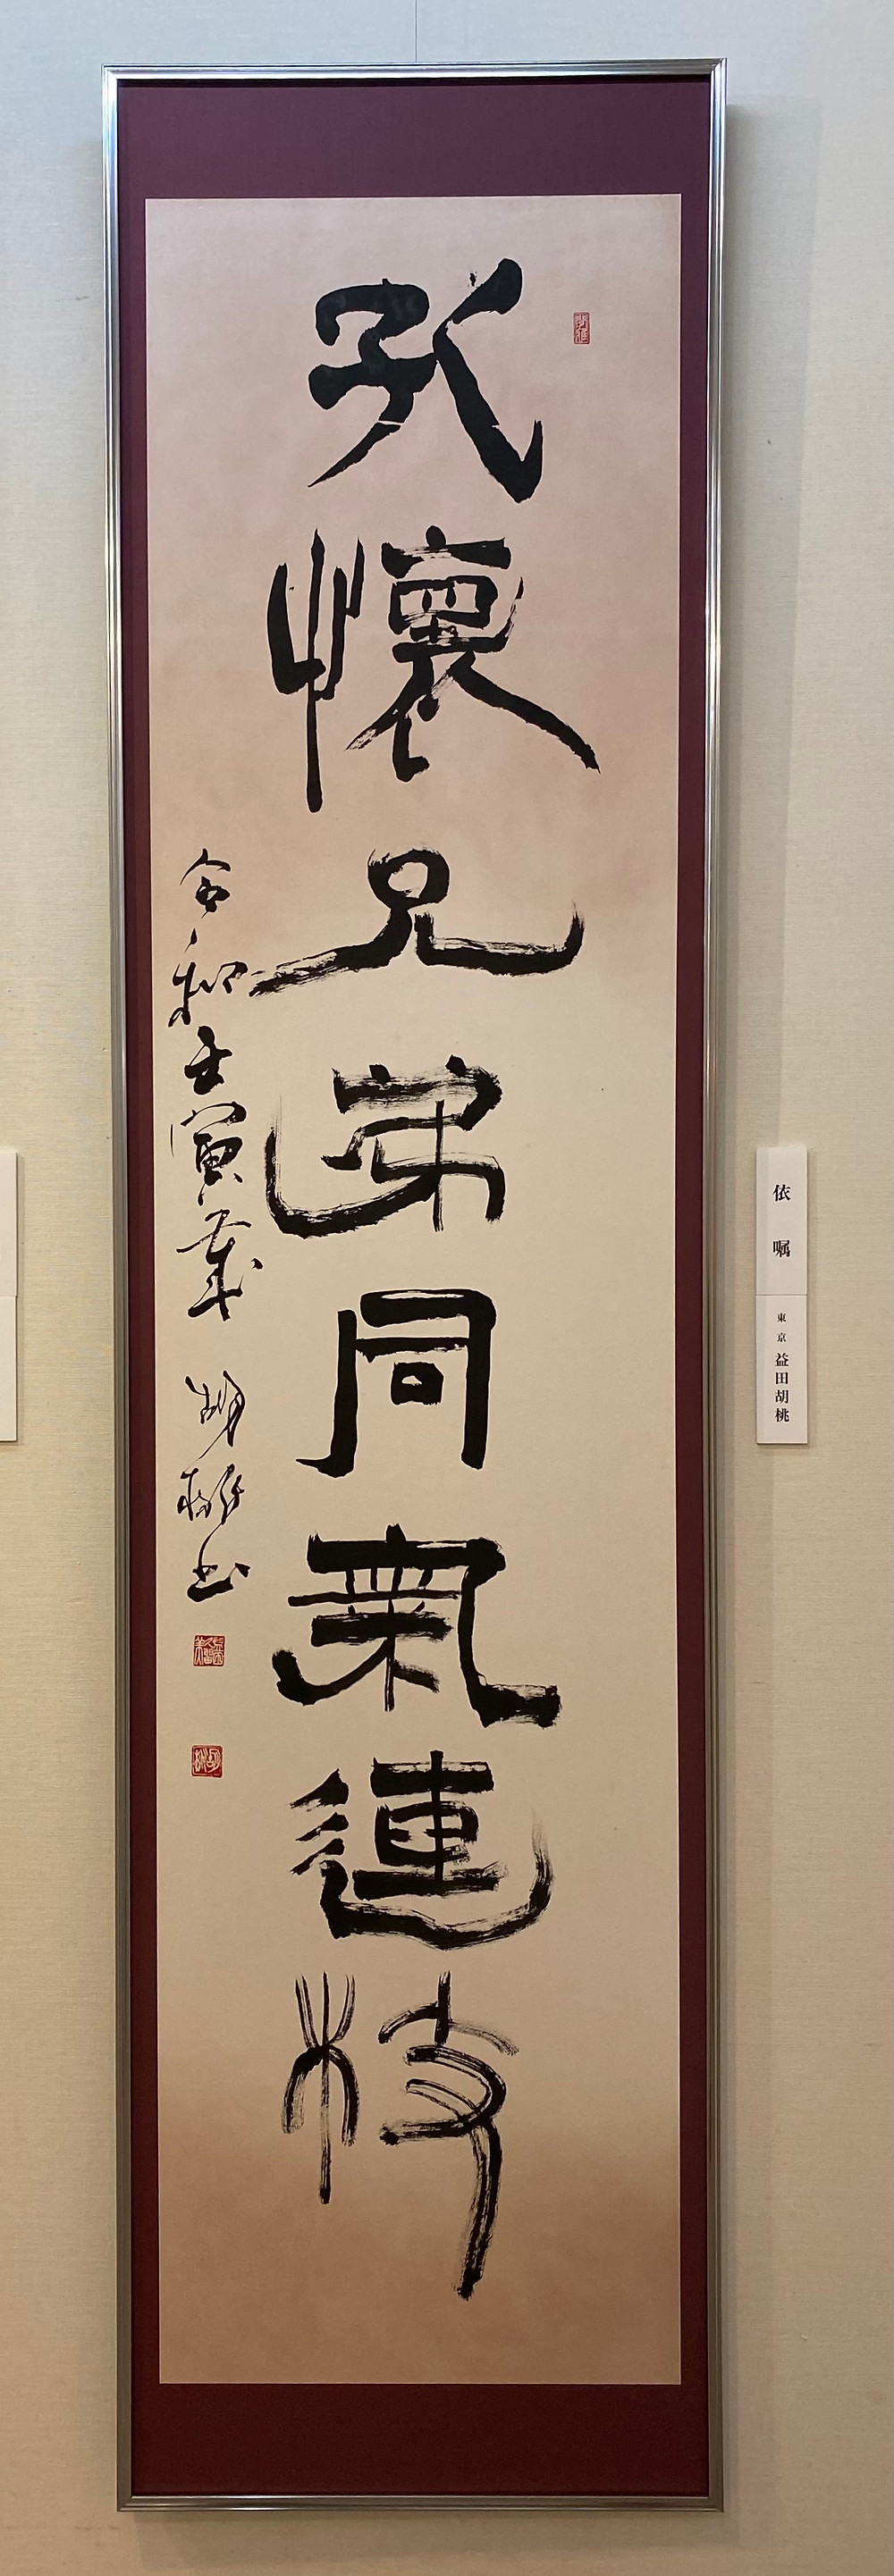 孔懷兄弟同氣連枝
令和壬寅歳 胡桃書
依嘱
東京 益田胡桃